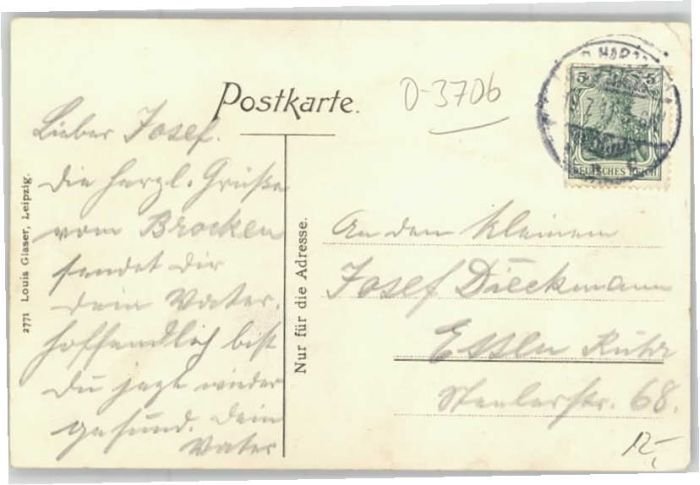 Postkarte.
D-3706
Lieber Josef.
Die herzl. Grüße
vom Brocken
sendet dir
dein Vater.
hoffendlich bist
du jezt wieder
gesund. Dein
Vater
2771 Louis Glaser, Leipzig.
Nur für die Adresse.
5 5
DEUTSCHES REICH
An den kleinen
Josef Dieckmann
Essen Ruhr
Steelerstr. 68.
12,-